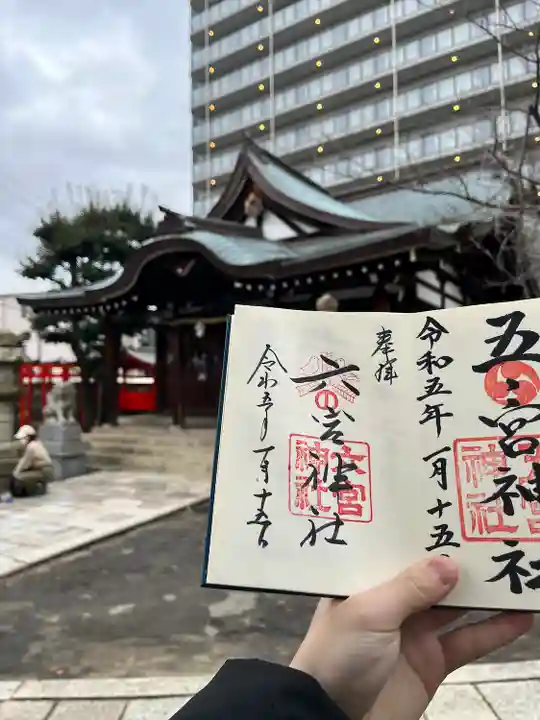 五宮神社
五宮神社
令和五年一月十五
奉拝
六宮神社
六の
六宮神社
令和五年一月十五日